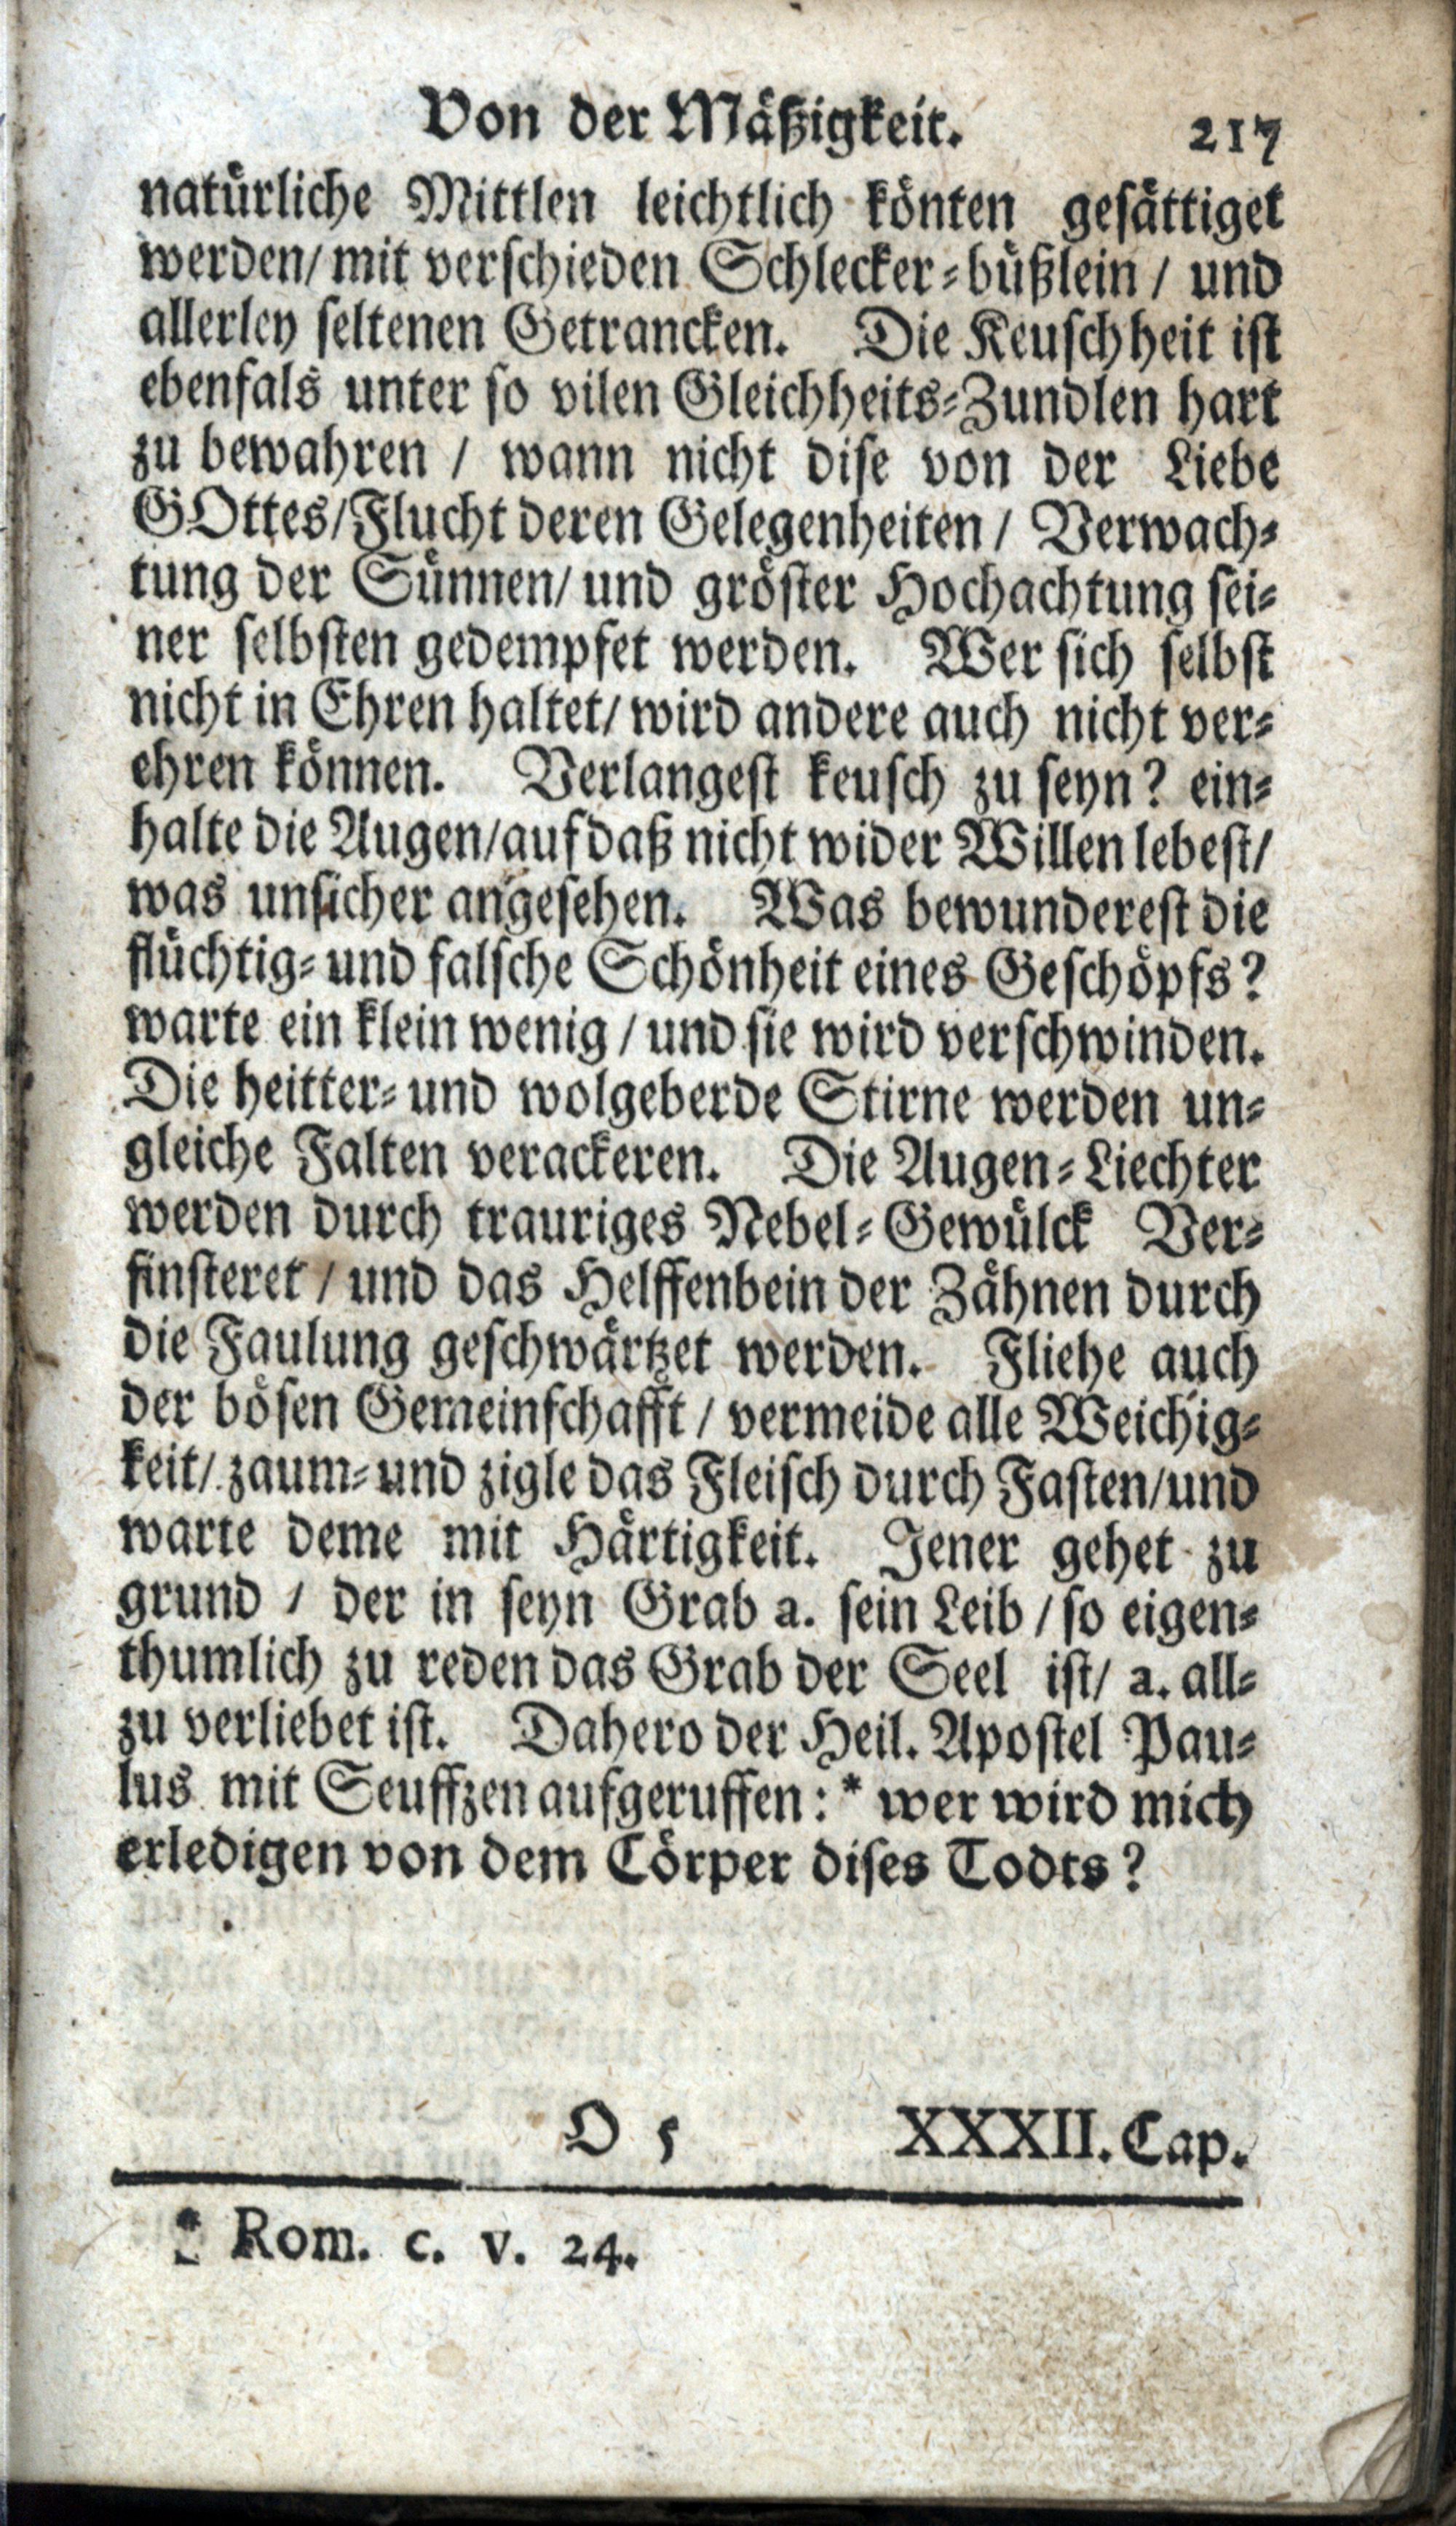 Von der Mäßigkeit. 217
natürliche Mittlen leichtlich könten gesättiget
werden/ mit verschieden Schlecker-büßlein / und
allerley seltenen Getrancken. Die Keuschheit ist
ebenfals unter so vilen Gleichheits-Zundlen hart
zu bewahren / wann nicht dise von der Liebe
GOttes/Flucht deren Gelegenheiten / Verwach-
tung der Sünnen/ und gröster Hochachtung sei-
ner selbsten gedempfet werden. Wer sich selbst
nicht in Ehren haltet/ wird andere auch nicht ver-
ehren können. Verlangest keusch zu seyn? ein-
halte die Augen/auf daß nicht wider Willen lebest/
was unsicher angesehen. Was bewunderest die
flüchtig- und falsche Schönheit eines Geschöpfs?
warte ein klein wenig / und sie wird verschwinden.
Die heitter- und wolgeberde Stirne werden un-
gleiche Falten verackeren. Die Augen-Liechter
werden durch trauriges Nebel-Gewülck Ver-
finsteret / und das Helffenbein der Zähnen durch
die Faulung geschwärtzet werden. Fliehe auch
der bösen Gemeinschafft / vermeide alle Weichig-
keit/ zaum- und zigle das Fleisch durch Fasten/und
warte deme mit Härtigkeit. Jener gehet zu
grund / der in seyn Grab a. sein Leib / so eigen-
thumlich zu reden das Grab der Seel ist/ a. all-
zu verliebet ist. Dahero der Heil. Apostel Pau-
lus mit Seuffzen aufgeruffen: * wer wird mich
erledigen von dem Cörper dises Todts?
O 5 XXXII. Cap.
* Rom. c. v. 24.